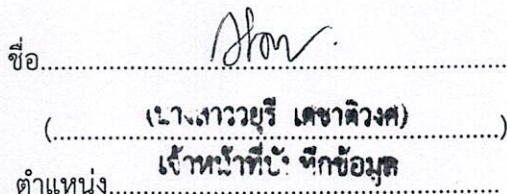 ชื่อ
(นางสาววยุรี เดชาติวงศ์)
ตำแหน่ง เจ้าหน้าที่บันทึกข้อมูล